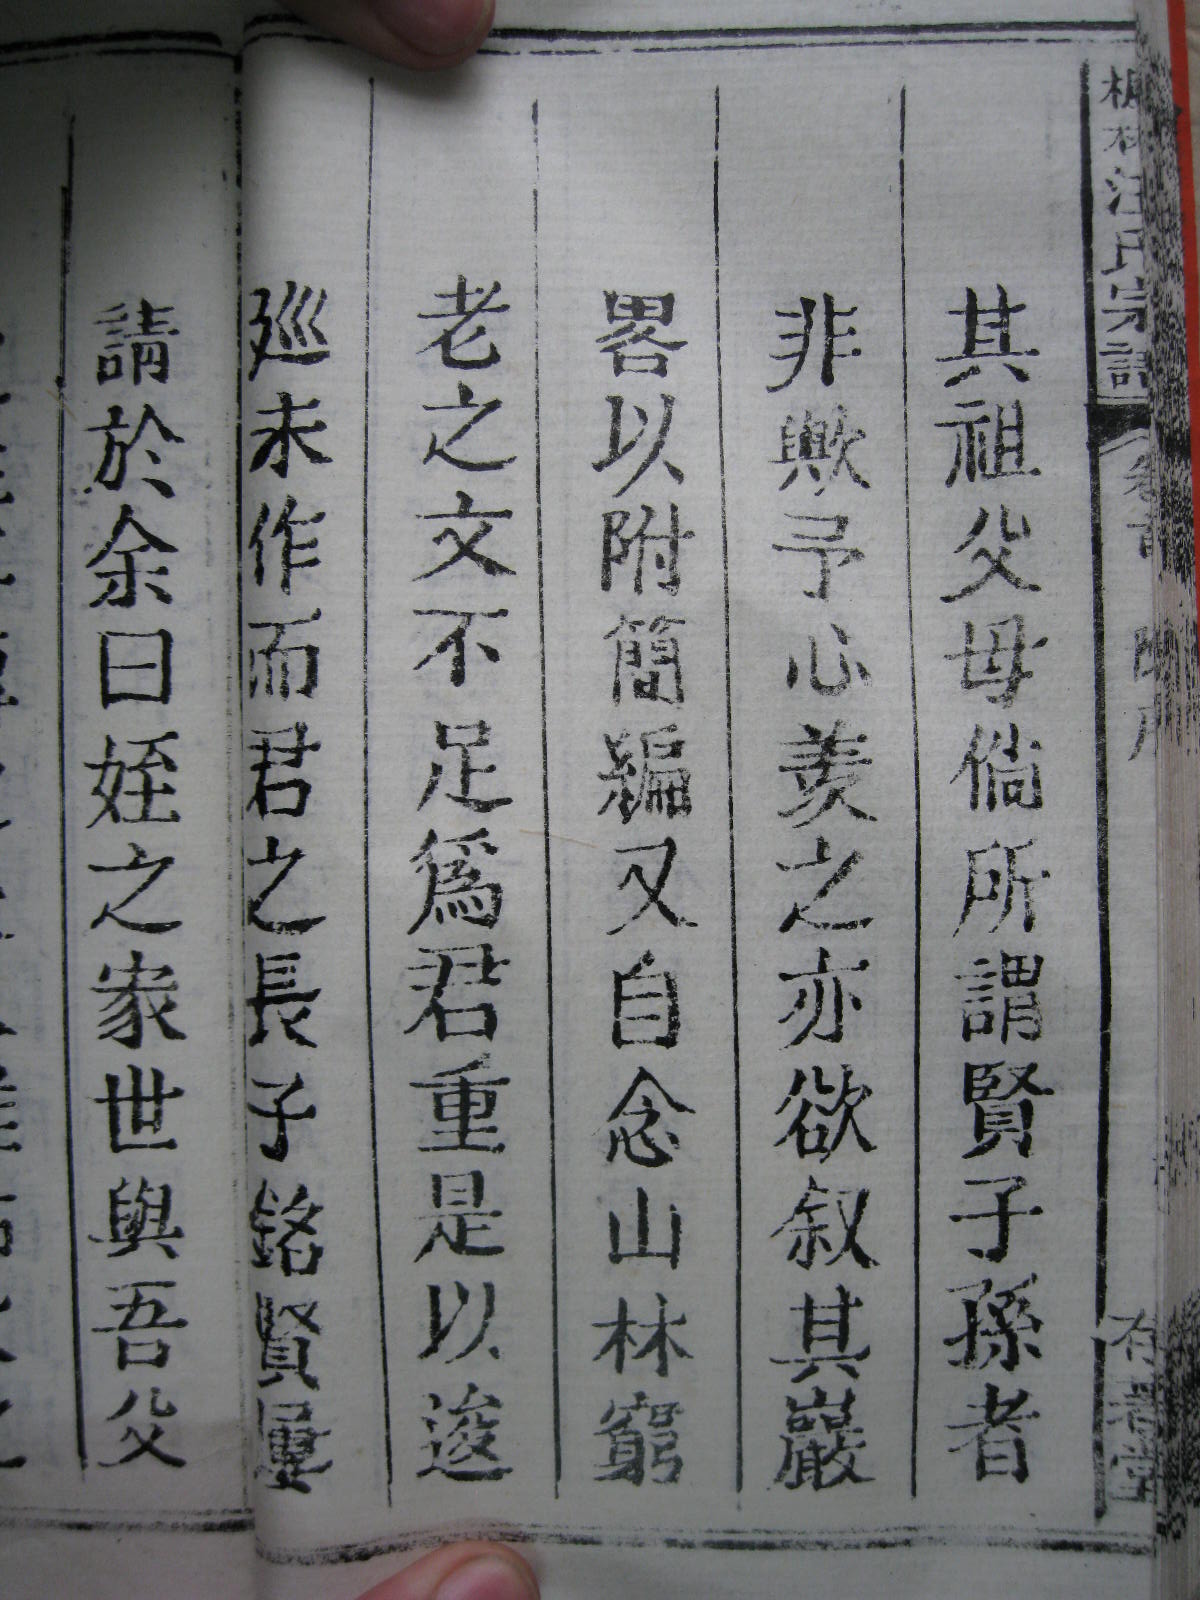 汪氏宗譜
其祖父母倘所謂賢子孫者
非歟予心羨之亦欲叙其巖
畧以附簡編又自念山林窮
老之文不足為君重是以逡
廵未作而君之長子銘賢屢
請於余曰姪之家世與吾父